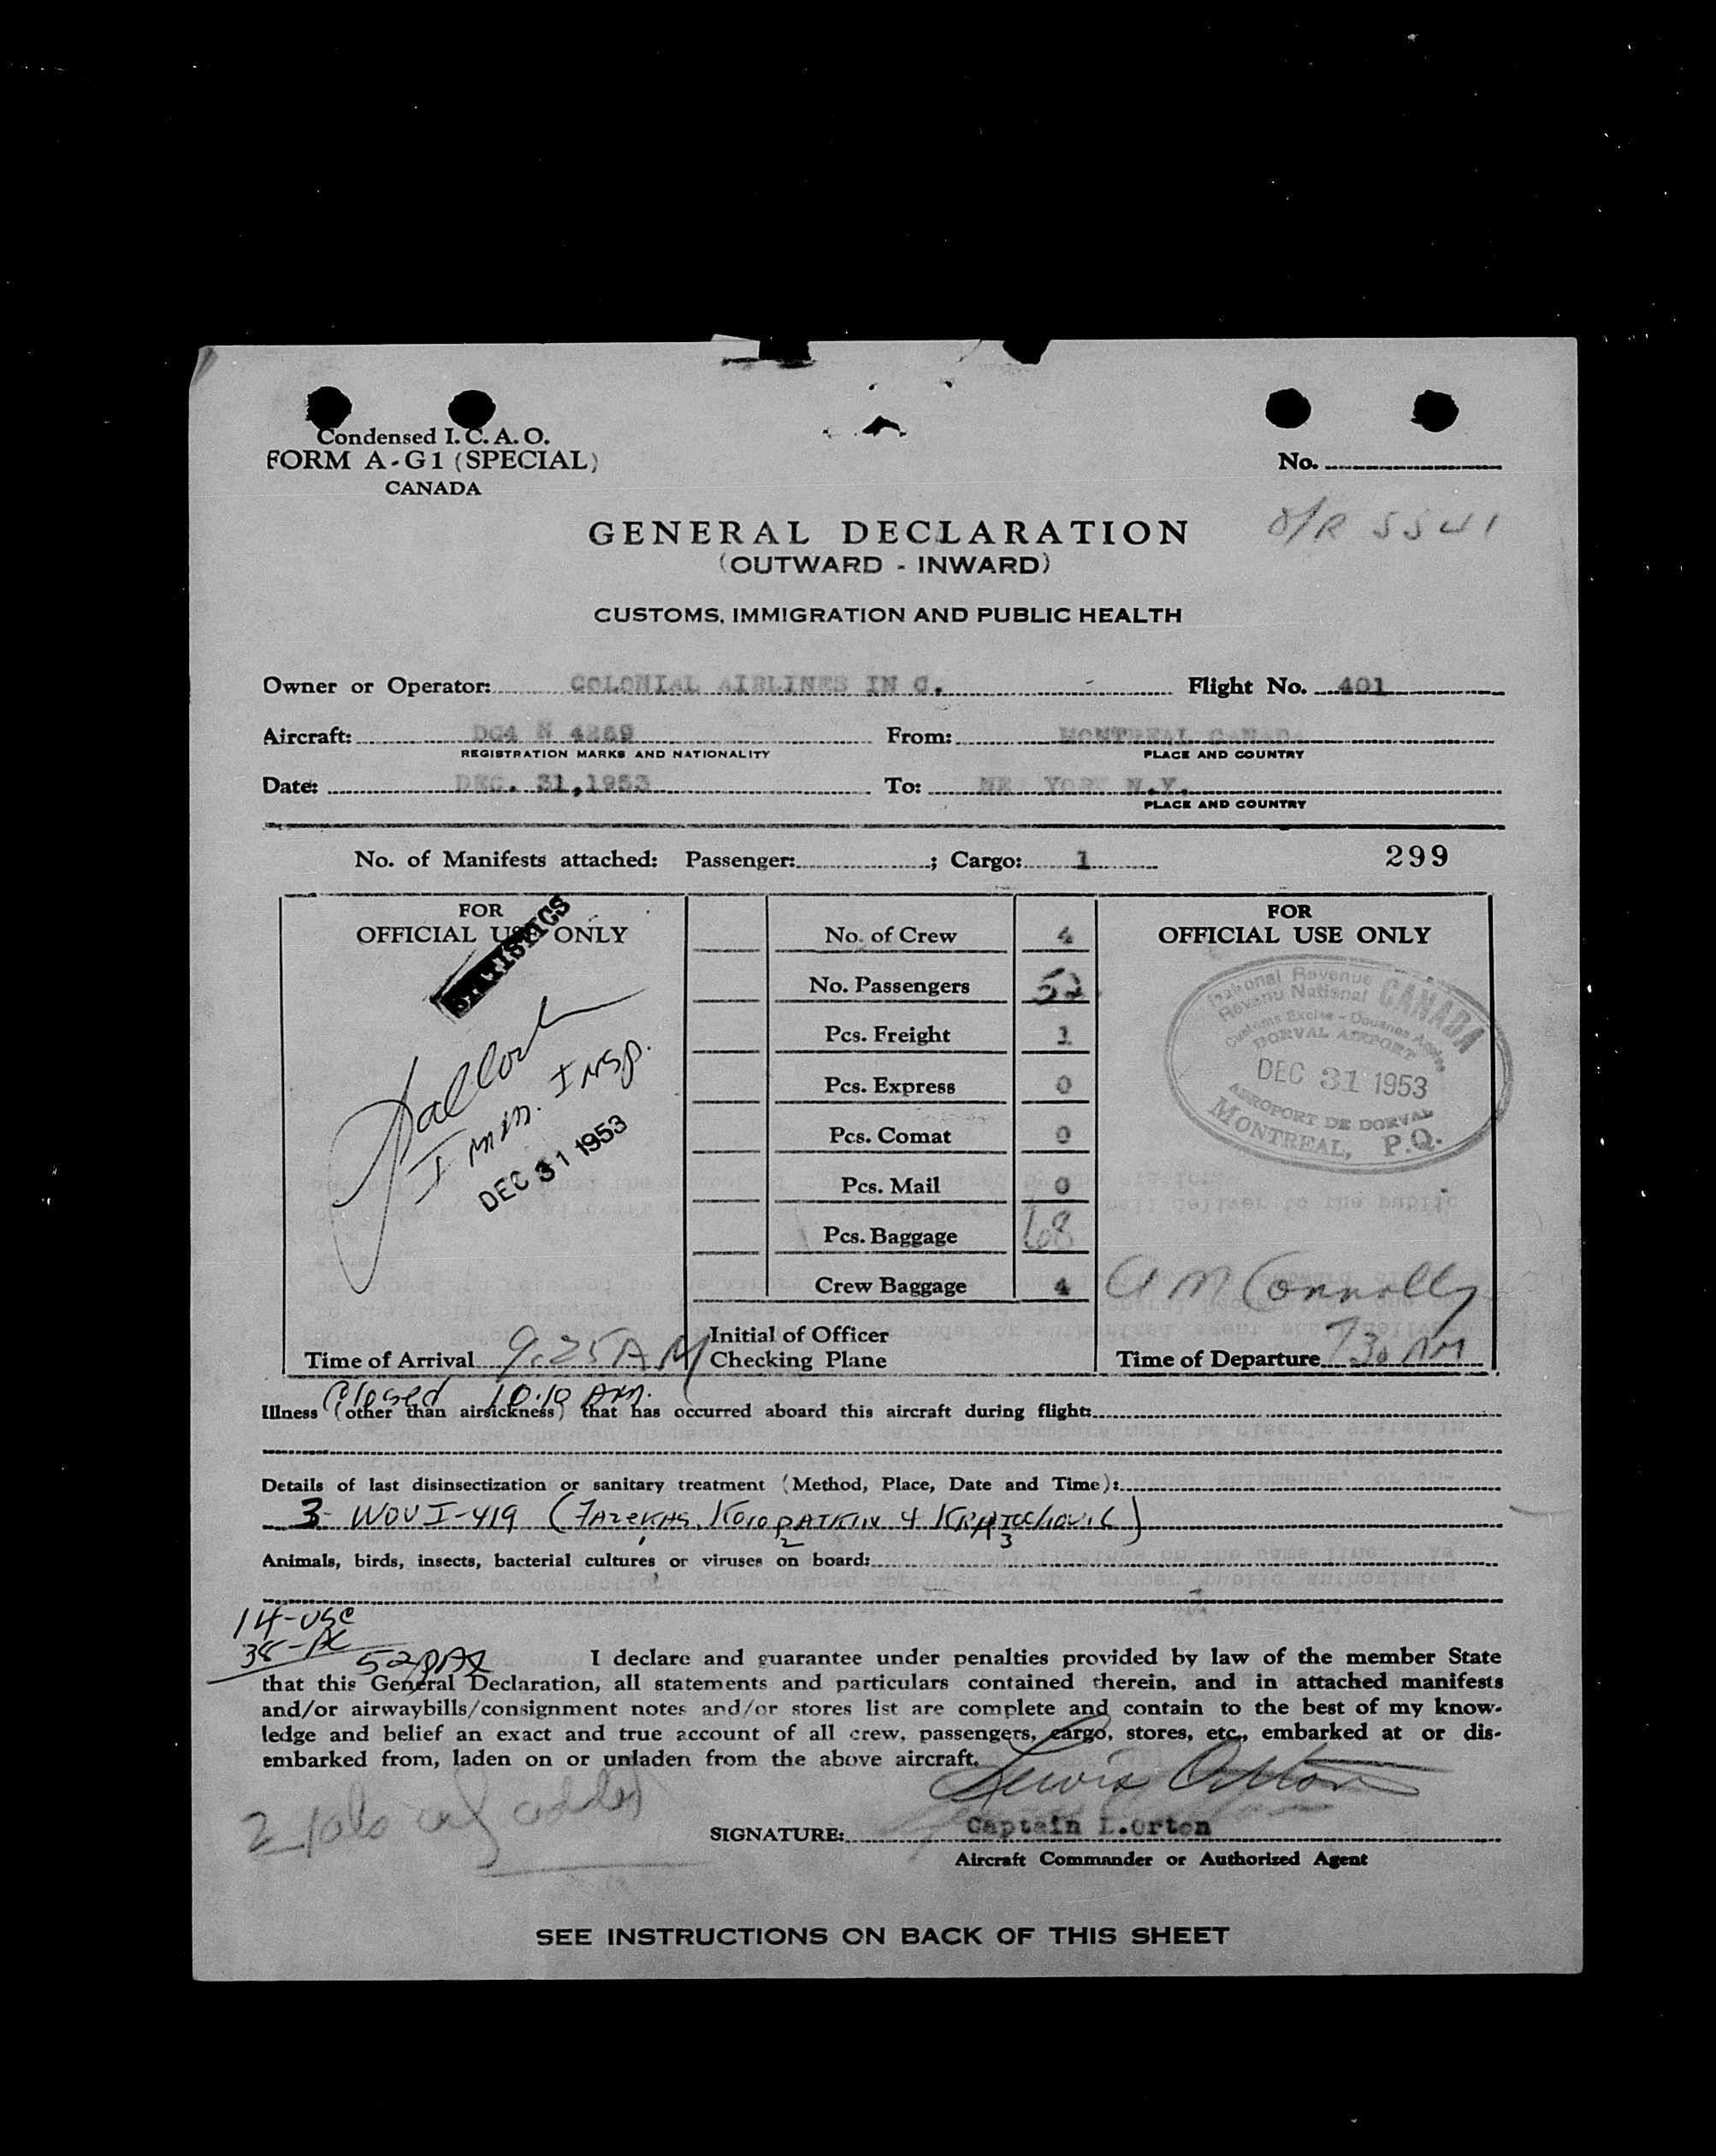 Condensed I. C. A. O.
FORM A-G1 (SPECIAL)
CANADA
No.
O/R 5541
GENERAL DECLARATION
(OUTWARD - INWARD)
CUSTOMS, IMMIGRATION AND PUBLIC HEALTH
Owner or Operator: COLONIAL AIRLINES IN C. Flight No. 401
Aircraft: DC4 N 4269 From: MONTREAL CANAD
REGISTRATION MARKS AND NATIONALITY PLACE AND COUNTRY
Date: DEC. 31,1953 To: NE YORK N.Y.
PLACE AND COUNTRY
No. of Manifests attached: Passenger: ; Cargo: 1 299
FOR
OFFICIAL USE ONLY
STATISTICS
Imm. Insp.
DEC 31 1953
Time of Arrival 9.25 AM
No. of Crew 4
No. Passengers 52
Pcs. Freight 1
Pcs. Express 0
Pcs. Comat 0
Pcs. Mail 0
Pcs. Baggage 68
Crew Baggage 4
Initial of Officer
Checking Plane
FOR
OFFICIAL USE ONLY
National Revenue CANADA
Revenu National
Customs Excise - Douanes Accise
DORVAL AIRPORT
DEC 31 1953
AEROPORT DE DORVAL
MONTREAL, P.Q.
A M Connolly
Time of Departure 730 AM
Closed 10:10 AM.
Illness (other than airsickness) that has occurred aboard this aircraft during flight:
Details of last disinsectization or sanitary treatment (Method, Place, Date and Time):
3- WOV I-419 (FAZEKAS, KOROPATKIN & KRATOCHOVIL)
1 2 3
Animals, birds, insects, bacterial cultures or viruses on board:
14-USC
38-AC
52 PAX
I declare and guarantee under penalties provided by law of the member State
that this General Declaration, all statements and particulars contained therein, and in attached manifests
and/or airwaybills/consignment notes and/or stores list are complete and contain to the best of my know-
ledge and belief an exact and true account of all crew, passengers, cargo, stores, etc., embarked at or dis-
embarked from, laden on or unladen from the above aircraft.
Lewis Orton
2 added
SIGNATURE: Captain L.Orton
Aircraft Commander or Authorized Agent
SEE INSTRUCTIONS ON BACK OF THIS SHEET